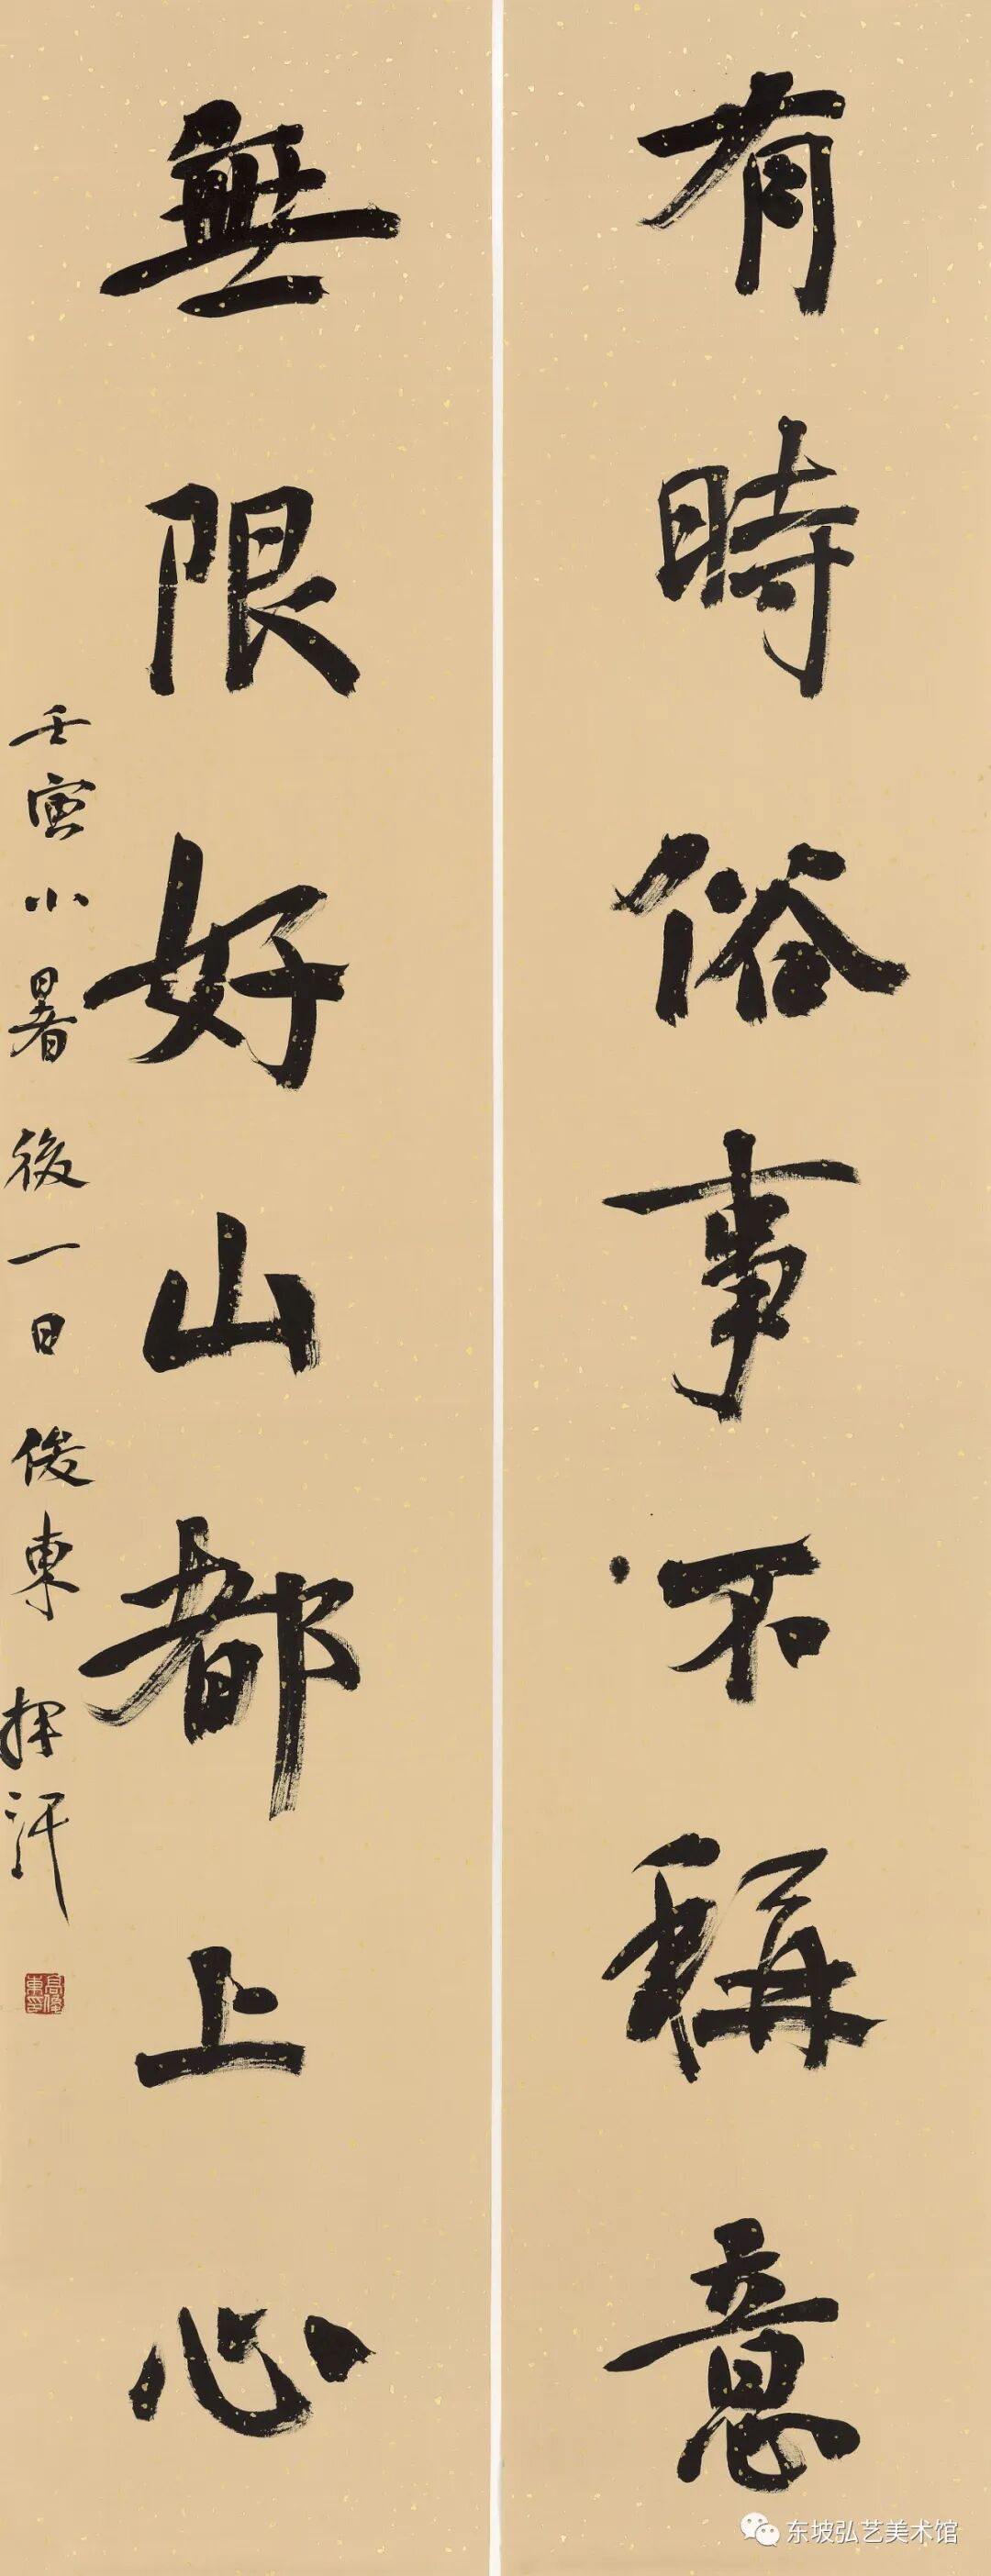 有時俗事不稱意
無限好山都上心
壬寅小暑後一日俊東揮汗
高俊東印
东坡弘艺美术馆